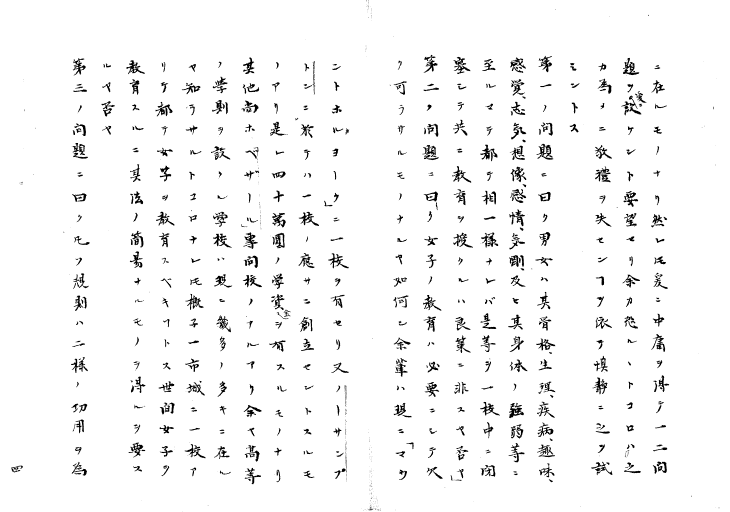 ニ在ルモノナリ然レ𪜈爰ニ中庸ヲ得テ一二問
題ヲ設ケント要望セリ余カ恐ルヽトコロハ之
カ為メニ敬禮ヲ失センヿヲ依テ慎静ニ之ヲ試
ミントス
第一ノ問題ニ曰ク男女ハ其骨格、生理、疾病、趣味、
感覚、志気、想像、感情、気剛、及ヒ其身体ノ強弱等ニ
至ルマテ都テ相一様ナレバ是等ヲ一校中ニ閉
塞シテ共ニ教育ヲ授クルハ良策ニ非スヤ否ヤ
第二ノ問題ニ曰ク女子ノ教育ハ必要ニシテ欠
ク可ラサルモノナルヤ如何ン余輩ハ現ニ「マウ
ントホルヨーク」ニ一校ヲ有セリ又ノーサンプ
トンニ於テハ一校ノ庭サニ創立セントスルモ
ノアリ是レ四十萬圓ノ学資金ヲ有スルモノナリ
其他尚ホベザール」専問校ノアルアリ余ヤ高等
ノ学則ヲ設クル学校ハ現ニ幾多ノ多キニ在ル
ヤ知ラサルトコロナレ𪜈概子一市城ニ一校ア
リテ都テ女子ヲ教育スベキヿトス世間女子ヲ
教育スルニ其法ノ簡易ナルモノヲ得ルヲ要ス
ルヤ否ヤ
第三ノ問題ニ曰ク凡ソ規則ハ二様ノ功用ヲ為
四